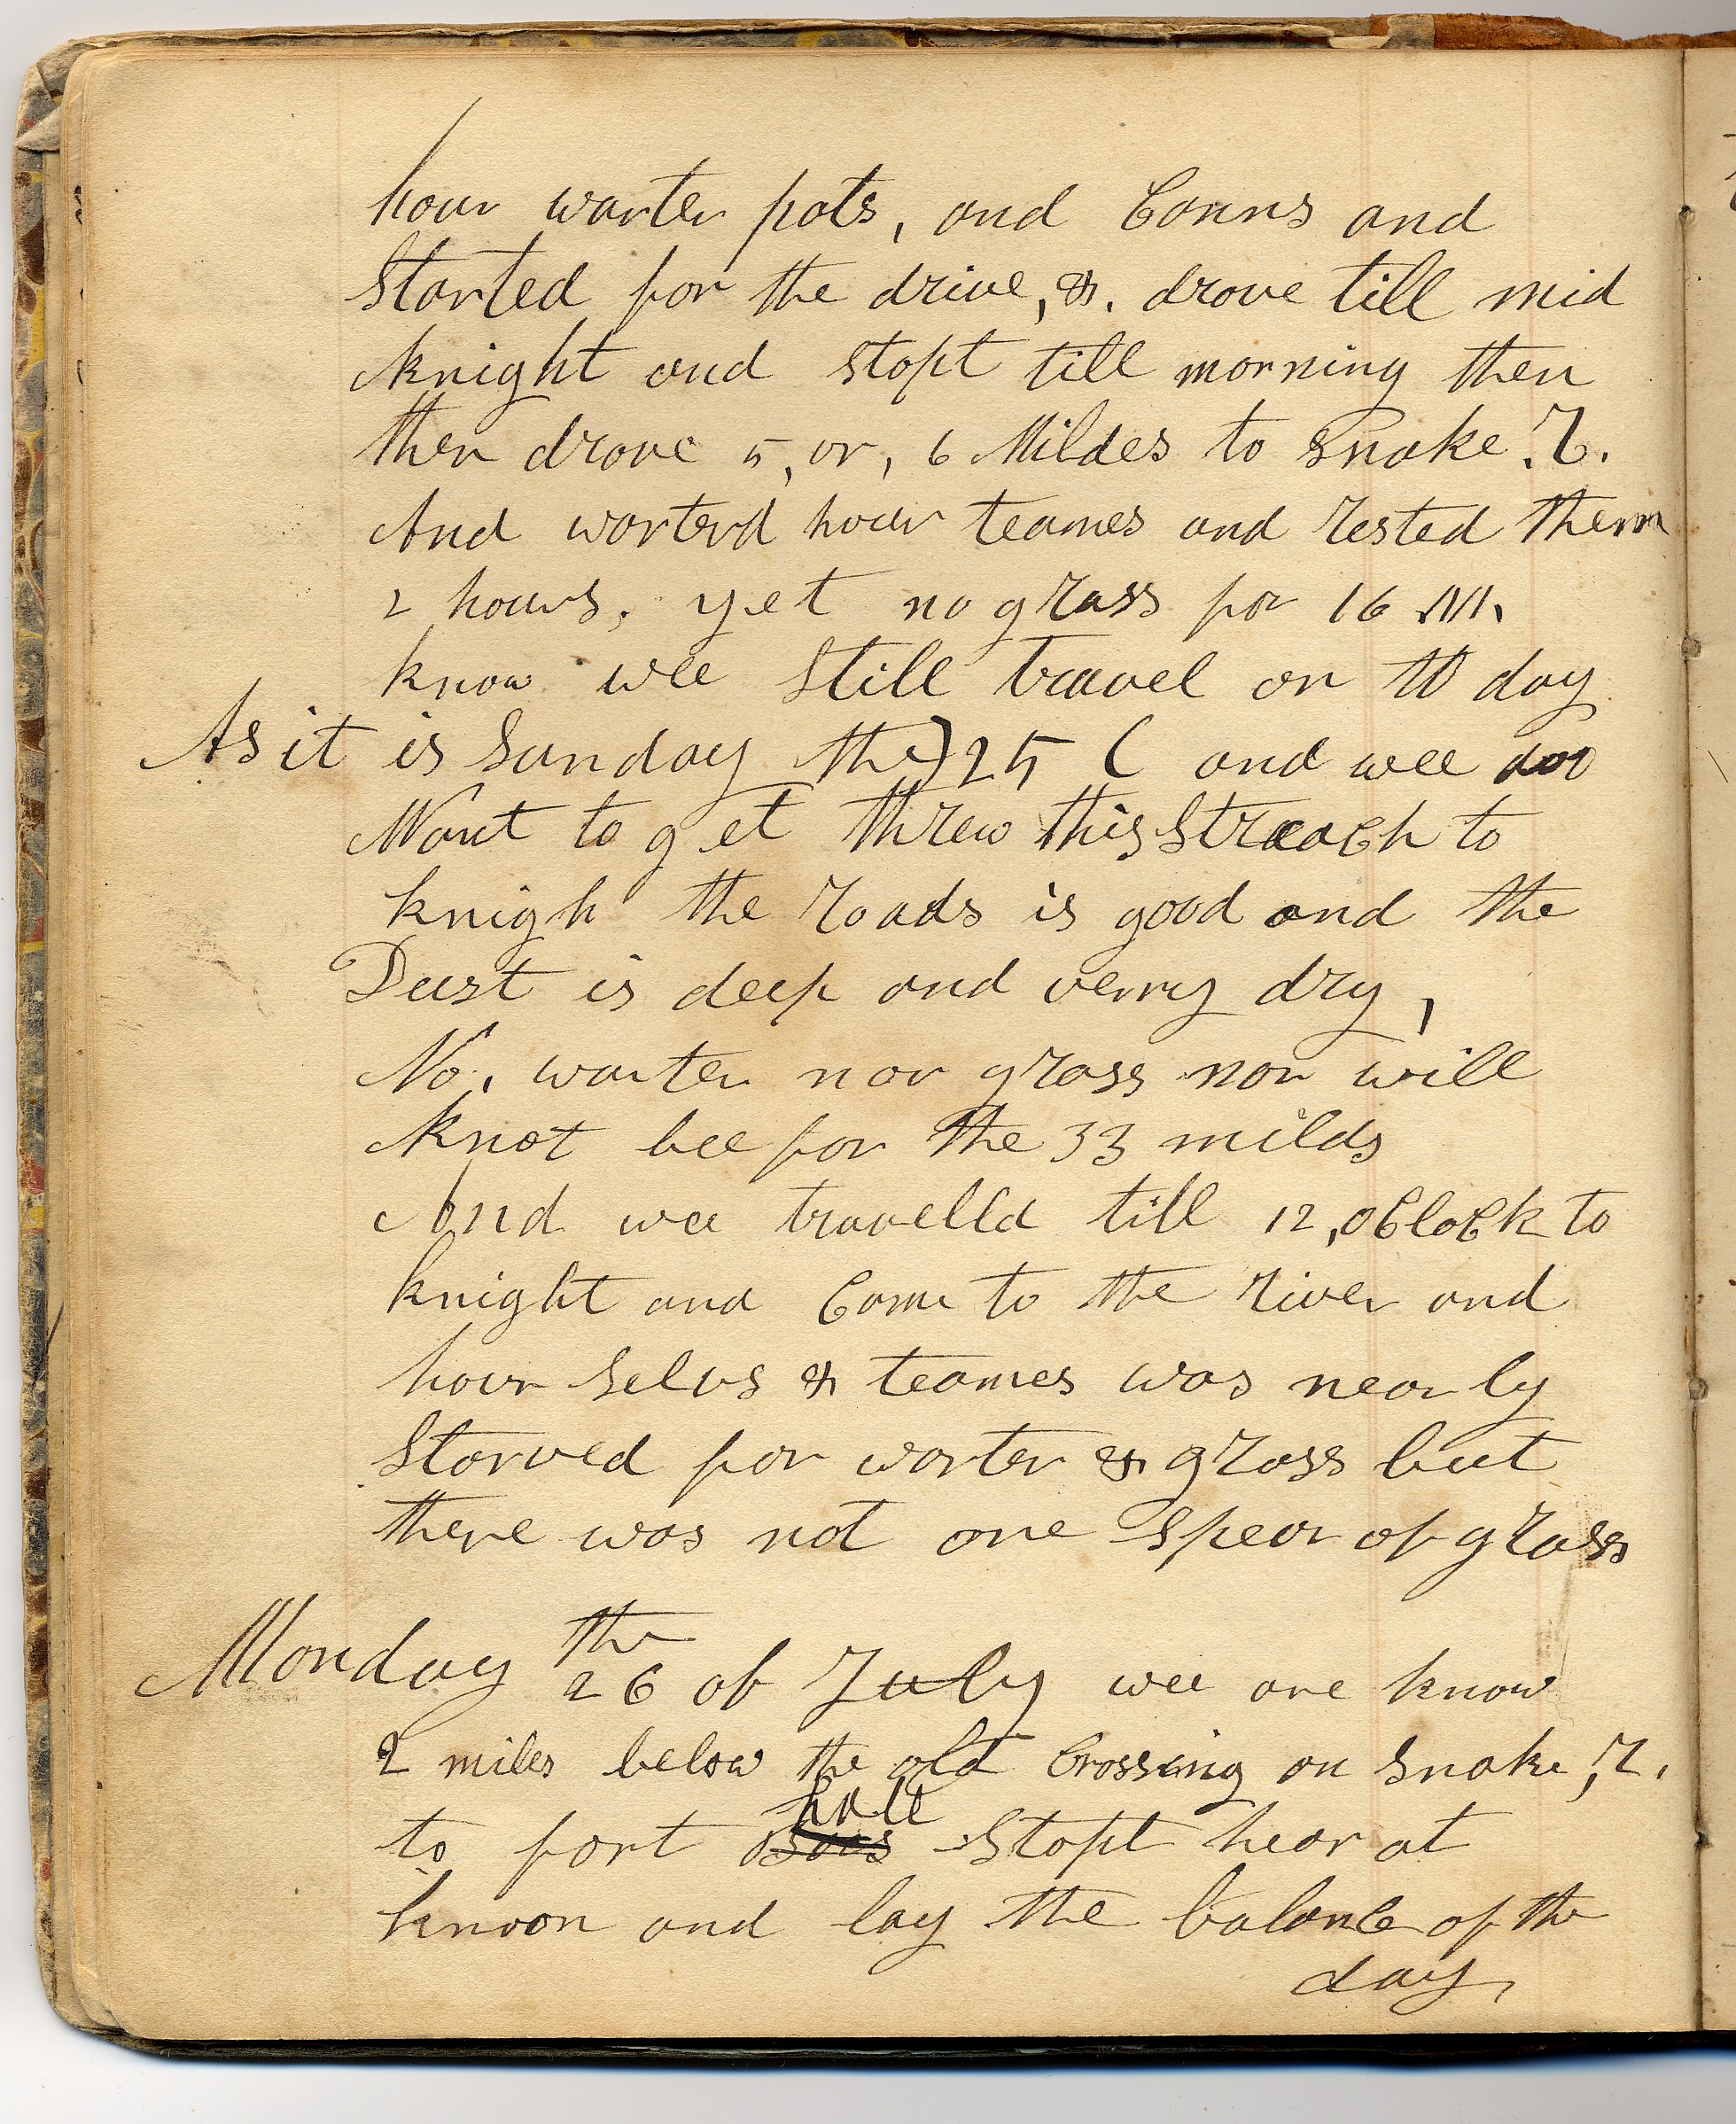 hour warter pots, and Canns and
Started for the drive, &. drove till mid
knight and stopt till morning then
then drove 5, or, 6 Mildes to Snake. R.
And warterd hour teames and rested them
2 hours, yet no grass for 16 M.
know wee Still travel on to day
As it is Sunday the) 25 ( and wee doo
Want to get threw this Streach to
knigh the roads is good and the
Dust is deep and verry dry,
No, warter nor grass nor will
knot bee for the 33 milds
And wee travelld till 12, oCloCk to
knight and Come to the river and
hour Selvs & teames was nearly
Starved for warter & grass but
there was not one Spear of grass
Monday the 26 of July wee are know
2 miles below the old Crossing on Snake, R.
to fort hall Stopt hear at
knoon and lay the balance of the
day,